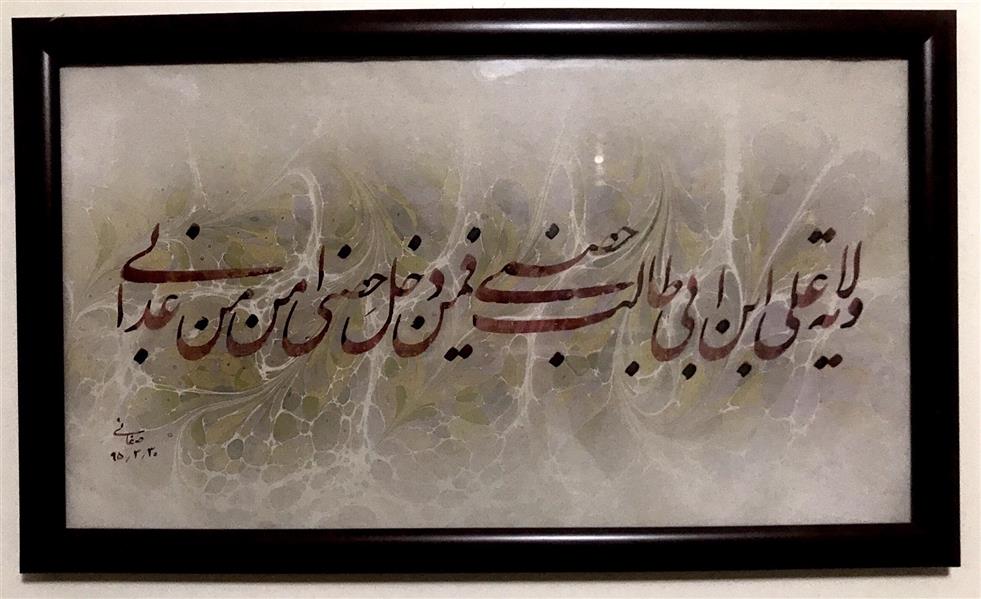 ولایة علی ابن ابی طالب حصنی فمن دخل حصنی امن من عذابی
صفائی
۹۵/۲/۲۰